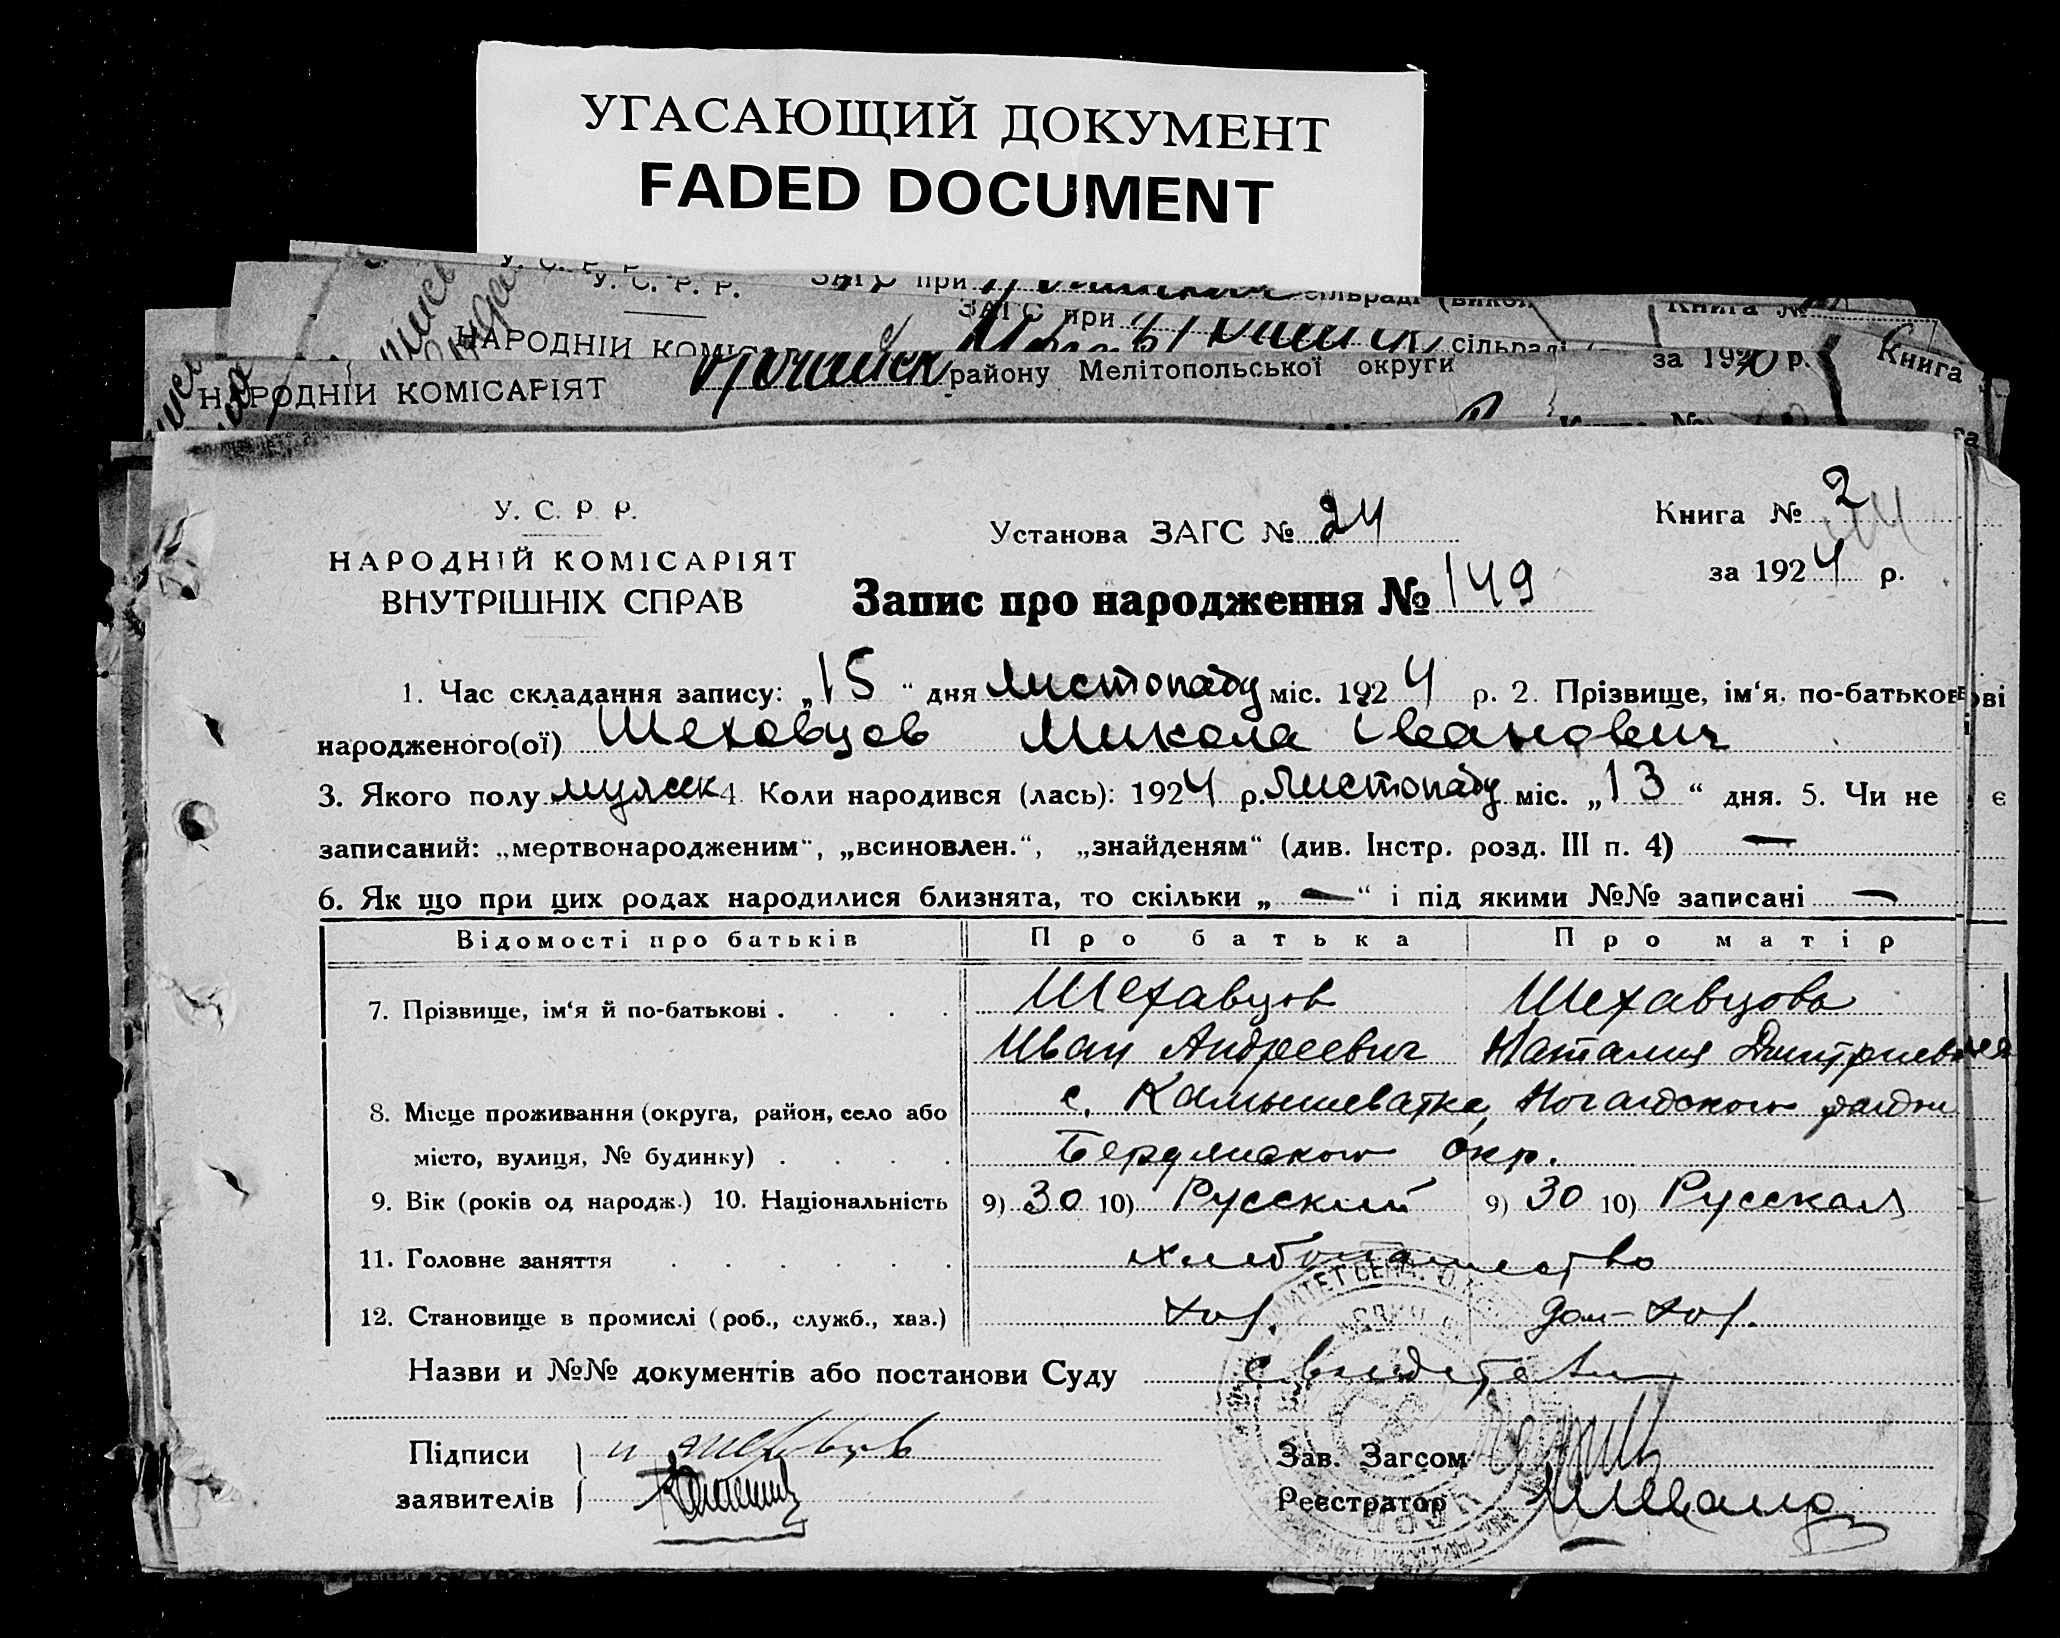 УГАСАЮЩИЙ ДОКУМЕНТ
FADED DOCUMENT
У. С. Р. Р.
У. С. Р. Р. ЗАГС при
ЗАГС при сільраді
НАРОДНІЙ Книга №
НАРОДНІЙ КОМІСАРІЯТ району Мелітопольської округи за 1920 р. Книга
У. С. Р. Р.
НАРОДНІЙ КОМІСАРІЯТ
ВНУТРІШНІХ СПРАВ
Установа ЗАГС № 24
Запис про народження № 149
Книга № 2
за 1924 р.
1. Час складання запису: „15“ дня листопаду міс. 1924 р. 2. Прізвище, ім‘я, по-батькові
народженого(ої) Шеховцов Микола Іванович
3. Якого полу мужеск 4. Коли народився (лась): 1924 р. листопаду міс. „13“ дня. 5. Чи не є
записаний: „мертвонародженим“, „всиновлен.“, „знайденям“ (див. Інстр. розд. III п. 4) —
6. Як що при цих родах народилися близнята, то скільки „—“ і під якими №№ записані —
Відомості про батьків Про батька Про матір
7. Прізвище, ім‘я й по-батькові . . . . Шехавцов Шехавцова
Иван Андреевич Наталия Дмитриевна
8. Місце проживання (округа, район, село або с. Камышеватка, Ногайского район
місто, вулиця, № будинку) . . . . Бердянского окр.
9. Вік (років од народж.) 10. Національність 9) 30 10) Русский 9) 30 10) Русская
11. Головне заняття . . . . . . хлебопашество
12. Становище в промислі (роб., служб., хаз.) хоз. дом-хоз.
Назви и №№ документів або постанови Суду
Підписи Шеховцов
заявителів
Зав. Загсом
Реєстратор